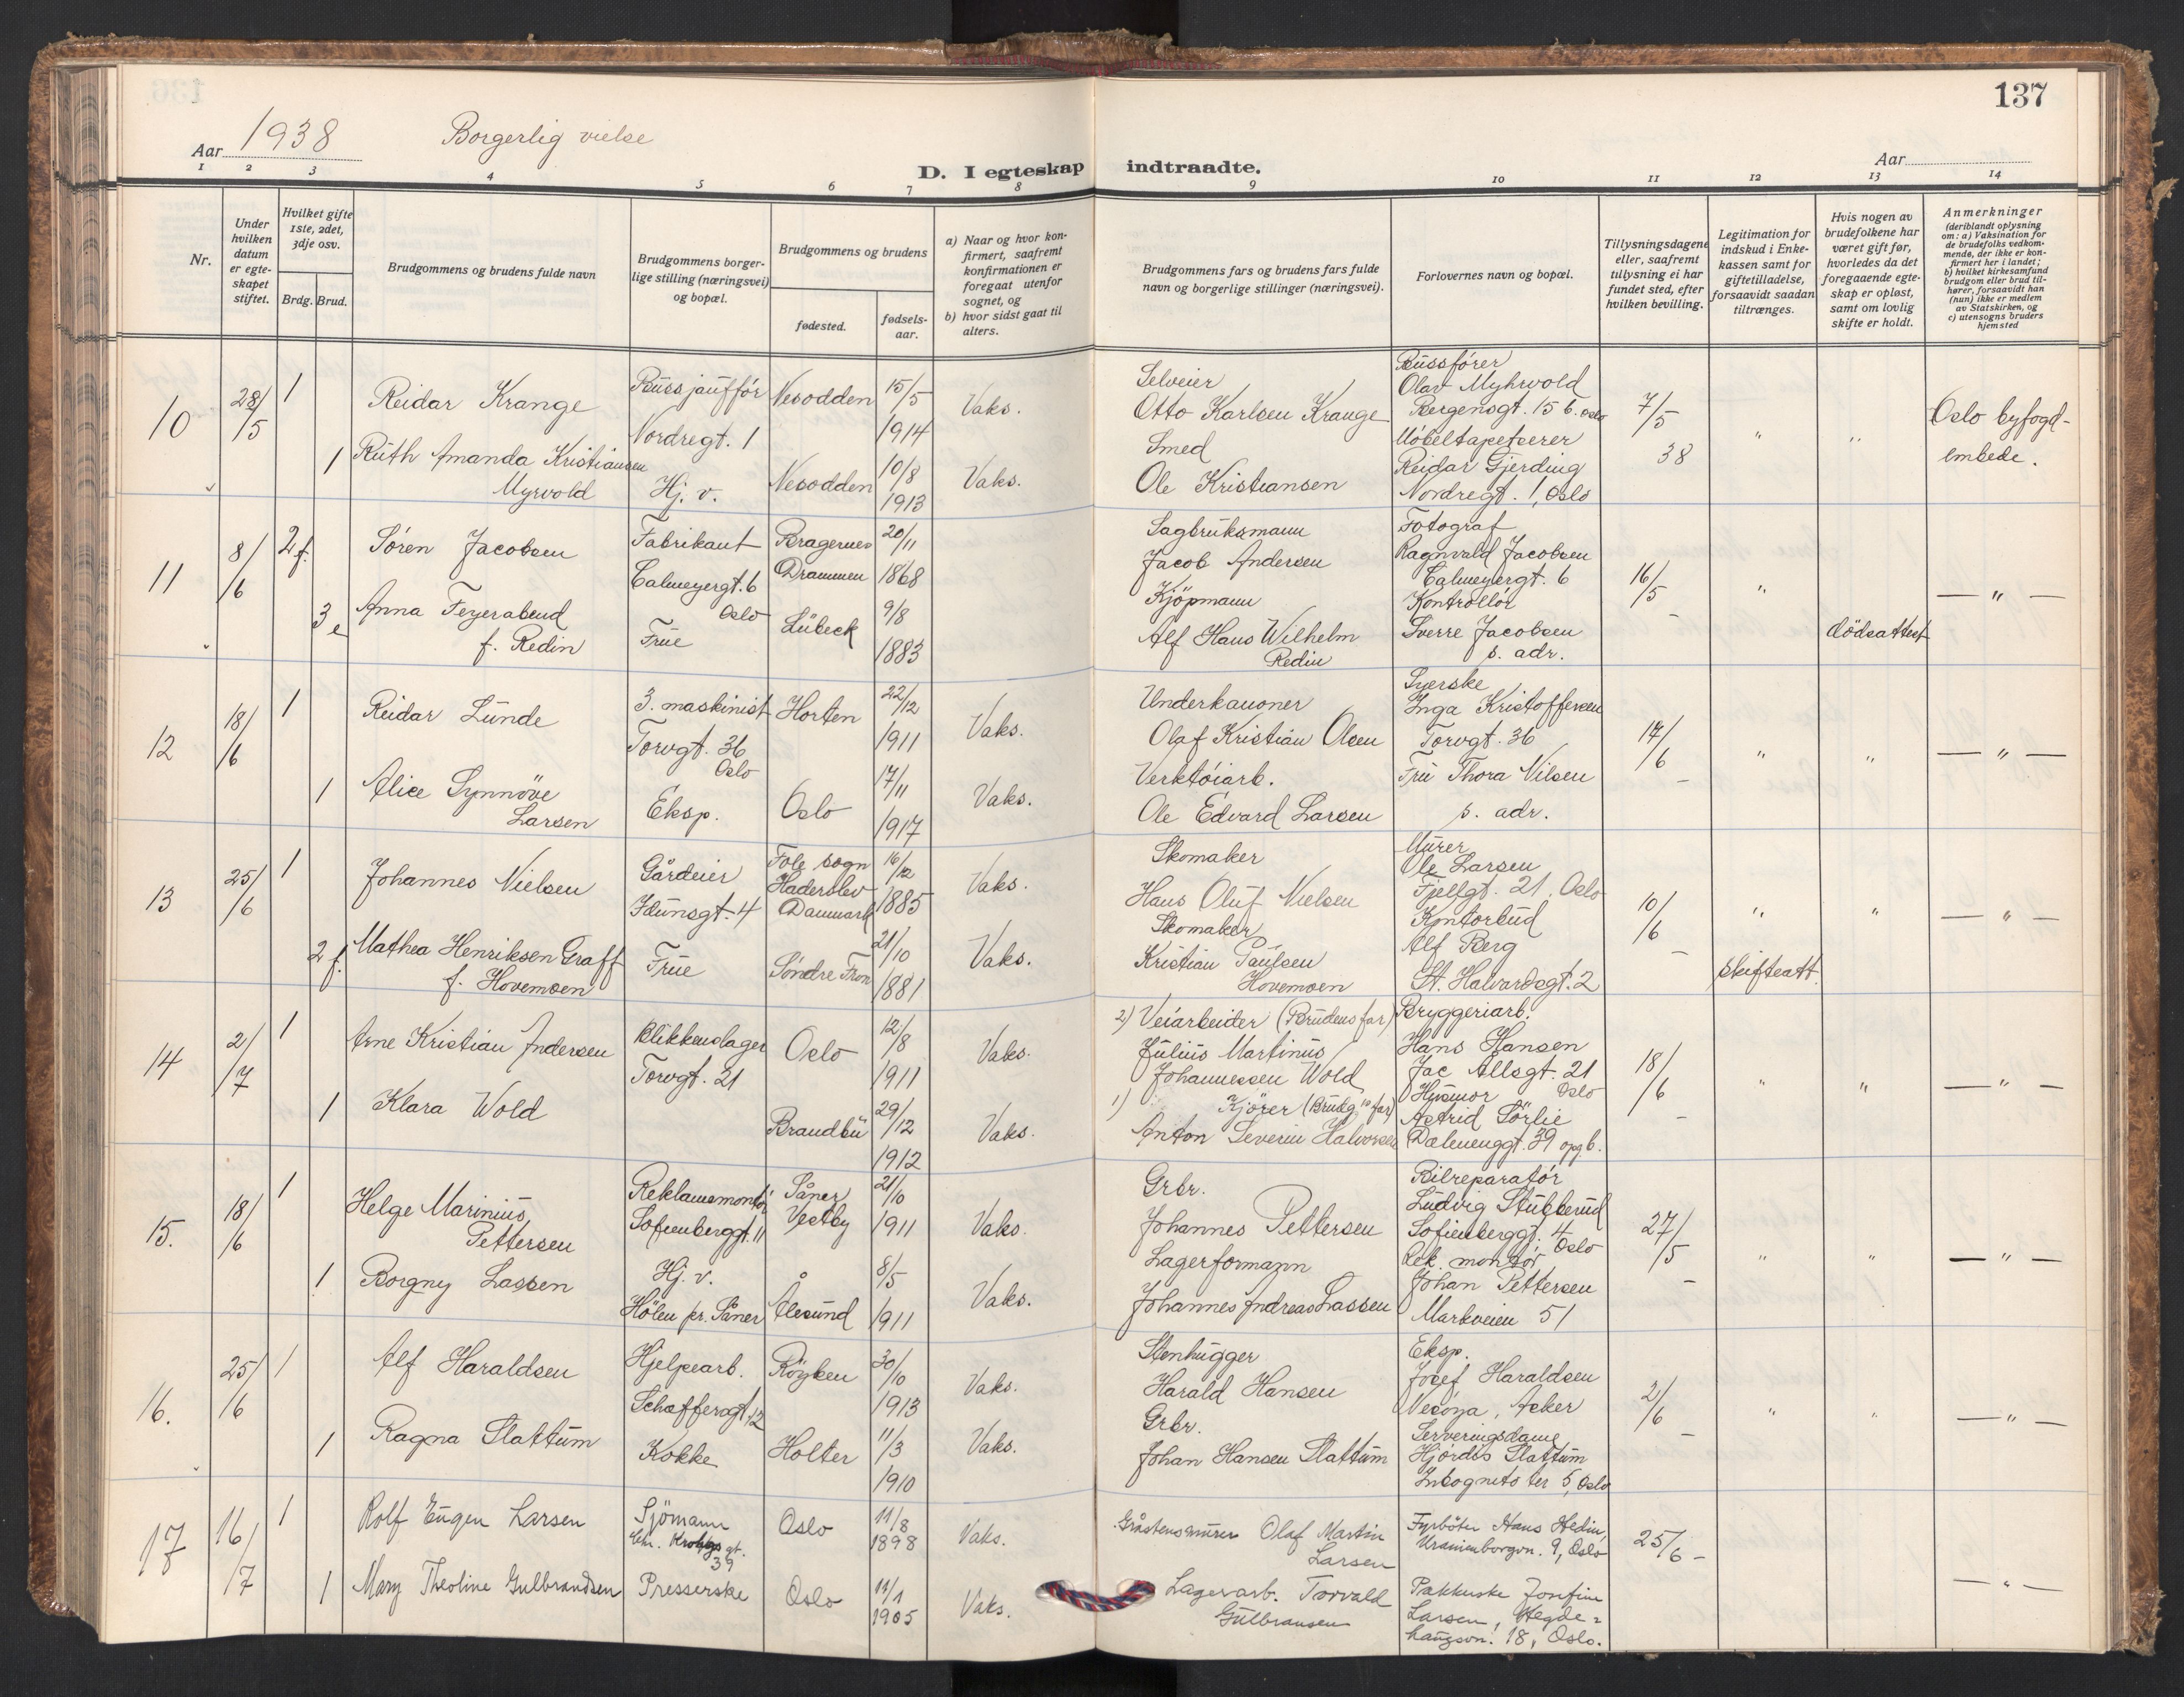 137
Aar 1938 Borgerlig vielse
D. I egteskap indtraadte.
Aar
1 2 3 4 5 6 7 8 9 10 11 12 13 14
Nr.
Under hvilken datum er egteskapet stiftet.
Hvilket gifte 1ste, 2det, 3dje osv.
Brdg. Brud.
Brudgommens og brudens fulde navn
Brudgommens borgerlige stilling (næringsvei) og bopæl.
Brudgommens og brudens
fødested.
fødselsaar.
a) Naar og hvor konfirmert, saafremt konfirmationen er foregaat utenfor sognet, og
b) hvor sidst gaat til alters.
Brudgommens fars og brudens fars fulde navn og borgerlige stillinger (næringsvei).
Forlovernes navn og bopæl.
Tillysningsdagene eller, saafremt tillysning ei har fundet sted, efter hvilken bevilling.
Legitimation for indskud i Enkekassen samt for giftetilladelse, forsaavidt saadan tiltrænges.
Hvis nogen av brudefolkene har været gift før, hvorledes da det foregaaende egteskap er opløst, samt om lovlig skifte er holdt.
Anmerkninger (deriblandt oplysning om: a) Vaksination for de brudefolks vedkommende, der ikke er konfirmert her i landet; b) hvilket kirkesamfund brudgom eller brud tilhører, forsaavidt han (hun) ikke er medlem av Statskirken, og c) utensogns bruders hjemsted
10 28/5 1 Reidar Krange Bussjaufför Nordregt. 1 Nesodden 15/5 1914 Vaks.
Selveier Otto Karlsen Krange
Bussfører Olav Myhrvold Bergensgt. 15 b. Oslo
7/5 38 " " Oslo byfogdembede.
1 Ruth Amanda Kristiansen Myrvold Hj. v. Nesodden 10/8 1913 Vaks.
Smed Ole Kristiansen
Möbeltapetserer Reidar Gjerding Nordregt. 1, Oslo
11 8/6 2 f. Søren Jacobsen Fabrikant Calmeyergt. 6 Oslo Bragernes Drammen 20/11 1868
Sagbruksmann Jacob Andersen
Fotograf Ragnvald Jacobsen Calmeyergt. 6
16/5 - " — " —
3 e Anna Feyerabend f. Redin Frue Lübeck 9/8 1883
Kjöpmann Alf Hans Wilhelm Redin
Kontrollör Sverre Jacobsen s. adr.
dödsattest
12 18/6 1 Reidar Lunde 3. maskinist Torvgt. 36 Oslo Horten 22/12 1911 Vaks.
Underkanoner Olaf Kristian Olsen
Syerske Inga Kristoffersen Torvgt. 36
17/6 - " " — " —
1 Alice Synnöve Larsen Eksp. Oslo 17/11 1917 Vaks.
Verktöiarb. Ole Edvard Larsen
Fru Thora Nilsen s. adr.
13 25/6 1 Johannes Nielsen Gårdeier Idunsgt. 4 Fole sogn Haderslev Danmark 16/12 1885 Vaks.
Skomaker Hans Oluf Nielsen
Murer Ole Larsen Fjellgt. 21, Oslo
10/6 - " " — " —
2 f. Mathea Henriksen Graff f. Hovemoen Frue Söndre Fron 21/10 1881 Vaks.
Skomaker Kristian Paulsen Hovemoen
Kontorbud Alf Berg St. Halvardsgt. 2
skifteatt.
14 2/7 1 Arne Kristian Andersen Blikkenslager Torvgt. 21 Oslo 12/8 1911 Vaks.
2) Veiarbeider (Brudens far) Julius Martinus Johannessen Wold
Bryggeriarb. Hans Hansen Jac Allsgt. 21 Oslo
18/6 - " " — " —
1 Klara Wold Brandbu 29/12 1912 Vaks.
1) Kjörer (Brudg. far) Anton Severin Halvorsen
Husmor Astrid Sörlie Dælenenggt. 39 opg b.
15. 18/6 1 Helge Marinius Pettersen Reklamemontör Sofienberggt. 11 Såner Vestby 21/10 1911 Vaks.
Grbr. Johannes Pettersen
Bilreparatör Ludvig Stubberud Sofienberggt. 4 Oslo
27/5 - " " — " —
1 Borgny Lassen Hj. v. Hölen pr. Såner Ålesund 8/5 1911 Vaks.
Lagerformann Johannes Andreas Lassen
Rek. montör Johan Pettersen Markveien 51
16. 25/6 1 Alf Haraldsen Hjelpearb. Schæffersgt. 12 Röyken 30/10 1913 Vaks.
Stenhugger Harald Hansen
Eksp. Josef Haraldsen Vesöya, Asker
2/6 - " " — " —
1 Ragna Slattum Kokke Holter 11/3 1910 Vaks.
Grbr. Johan Hansen Slattum
Serveringsdame Hjördis Slattum Incognito ter 5, Oslo
17 16/7 1 Rolf Eugen Larsen Sjömann Chr. Krohgs gt. 39 Oslo 11/8 1898 Vaks.
Gråstensmurer Olaf Martin Larsen
Fyrböter Hans Hedin, Uranienborgvn. 9, Oslo
25/6 - — " —
1 Mary Theoline Gulbrandsen Presserske Oslo 11/1 1905 Vaks.
Lagerarb. Torvald Gulbransen
Pakkerske Josefine Larsen, Hegdehaugsvn. 18, Oslo.